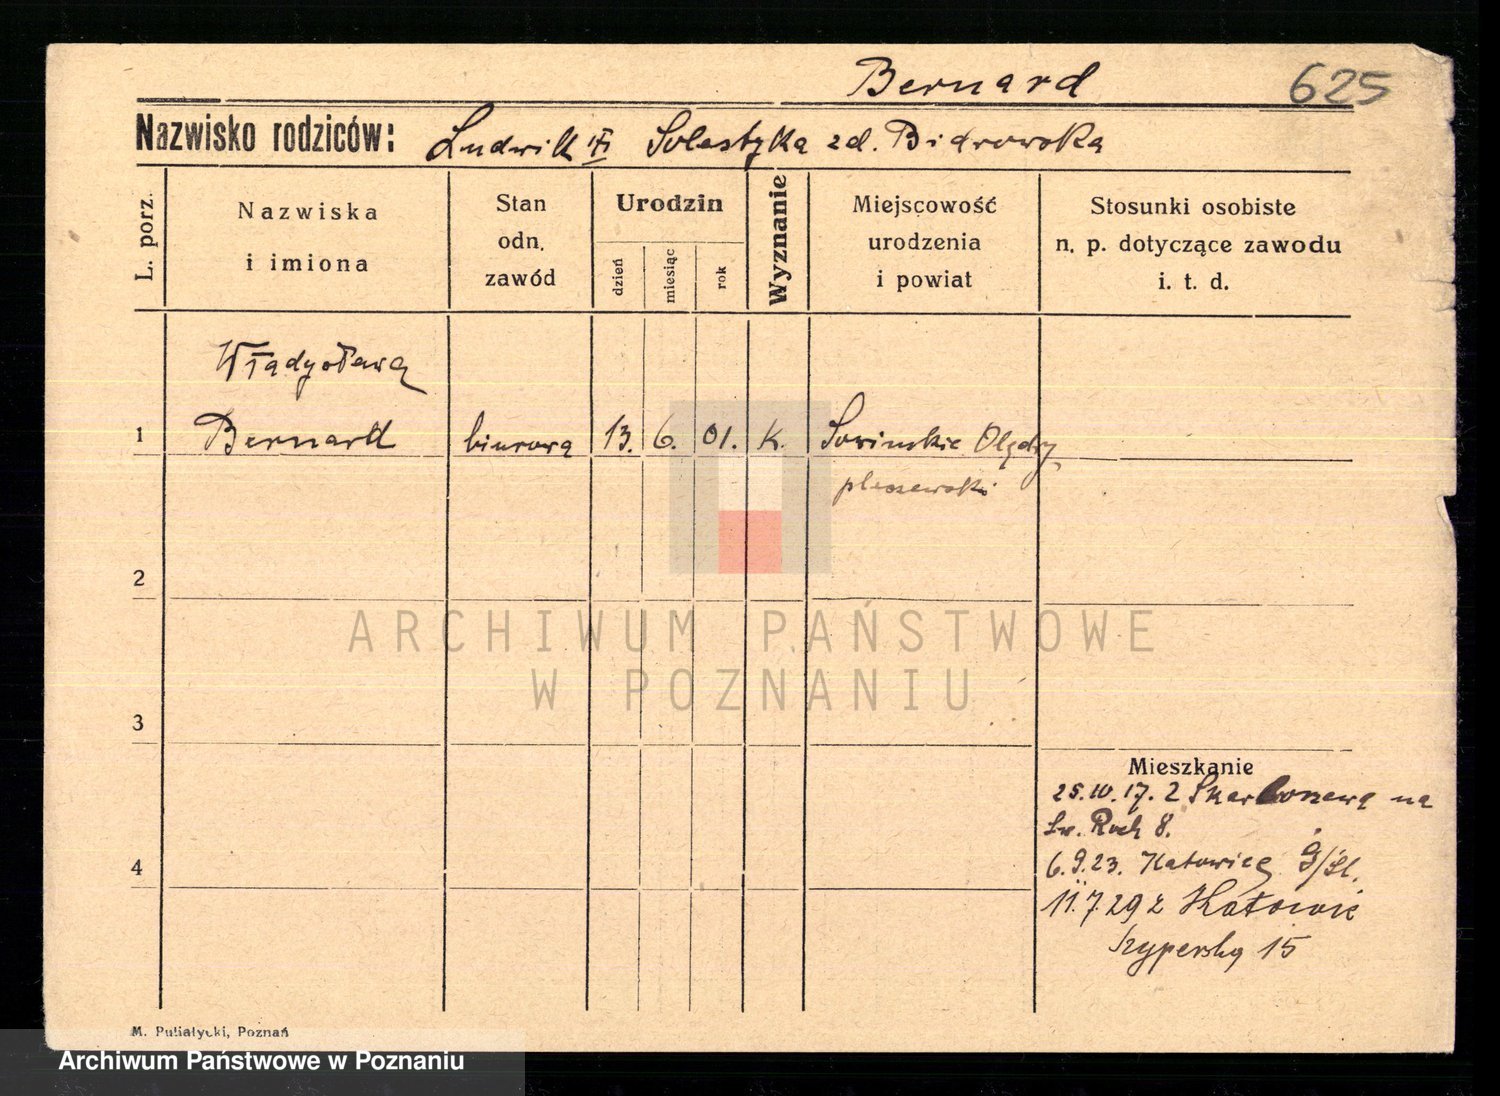 Bernard 625
Nazwisko rodziców: Ludwik i Solastyka zd. Bidrowska
L. porz.
Nazwiska
i imiona
Stan
odn.
zawód
Urodzin
dzień
miesiąc
rok
Wyznanie
Miejscowość
urodzenia
i powiat
Stosunki osobiste
n. p. dotyczące zawodu
i. t. d.
Władysława
1 Bernard biurowa 13. 6. 01. K. Sowinskie Olędry
pleszewski
2
ARCHIWUM PAŃSTWOWE
W POZNANIU
3
Mieszkanie
25.10.17. z Skarboszewa na
Św. Roch 8.
4
6.9.23. Katowice G/Śl.
11.7.29 z Katowic
Szyperska 15
M. Putiatycki, Poznań
Archiwum Państwowe w Poznaniu